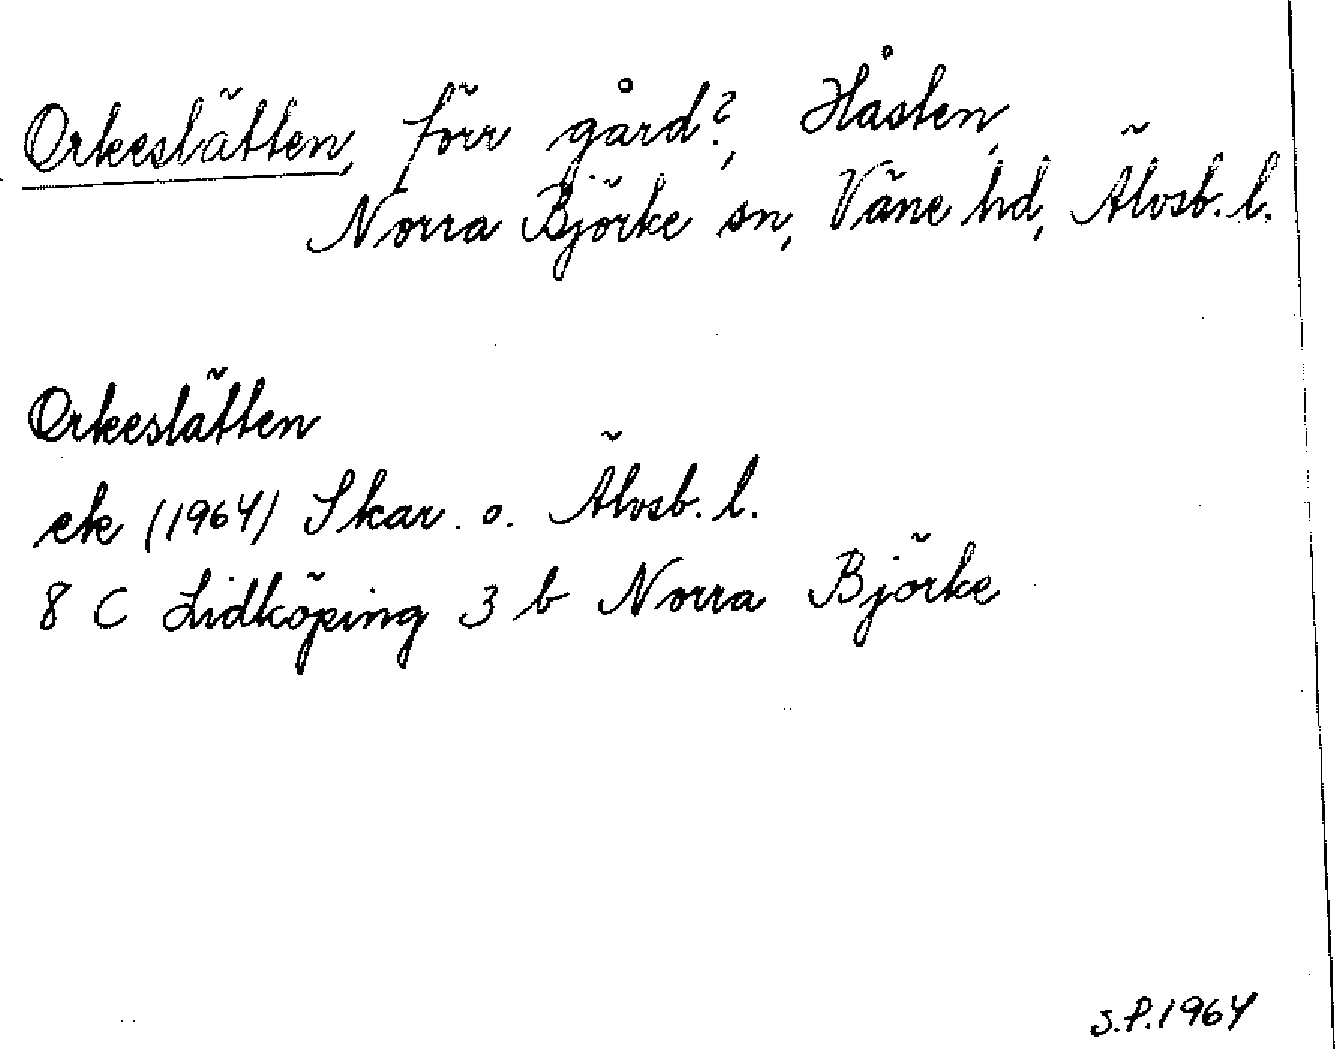 Orkeslätten, förr gård?, Håsten,
Norra Björke sn, Väne hd, Älvsb. l.
Orkeslätten
ek (1964) Skar. o. Älvsb. l.
8 C Lidköping 3 b Norra Björke
S.P.1964